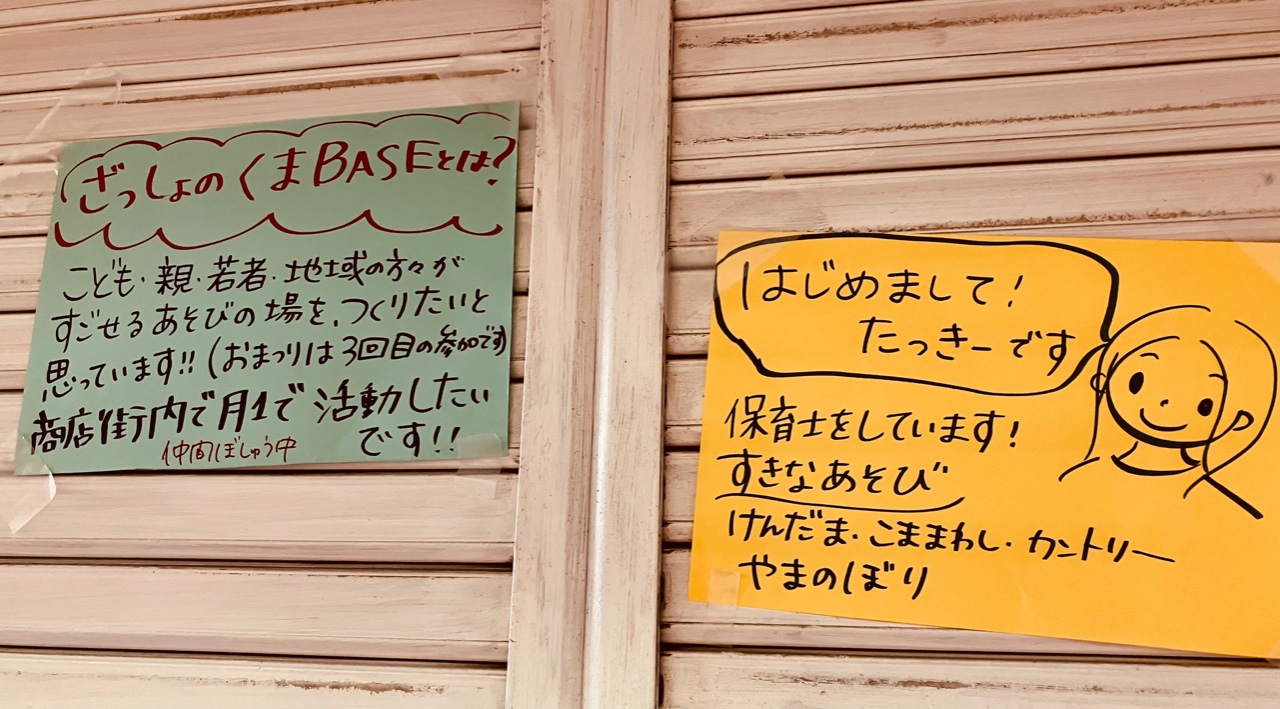 ざっしょのくまBASEとは?
こども・親・若者・地域の方々が
すごせるあそびの場を、つくりたいと
思っています!!(おまつりは3回目の参加です)
商店街内で月1で活動したい
です!!
仲間ぼしゅう中
はじめまして!
たっきーです
保育士をしています!
すきなあそび
けんだま・こままわし・カントリー
やまのぼり